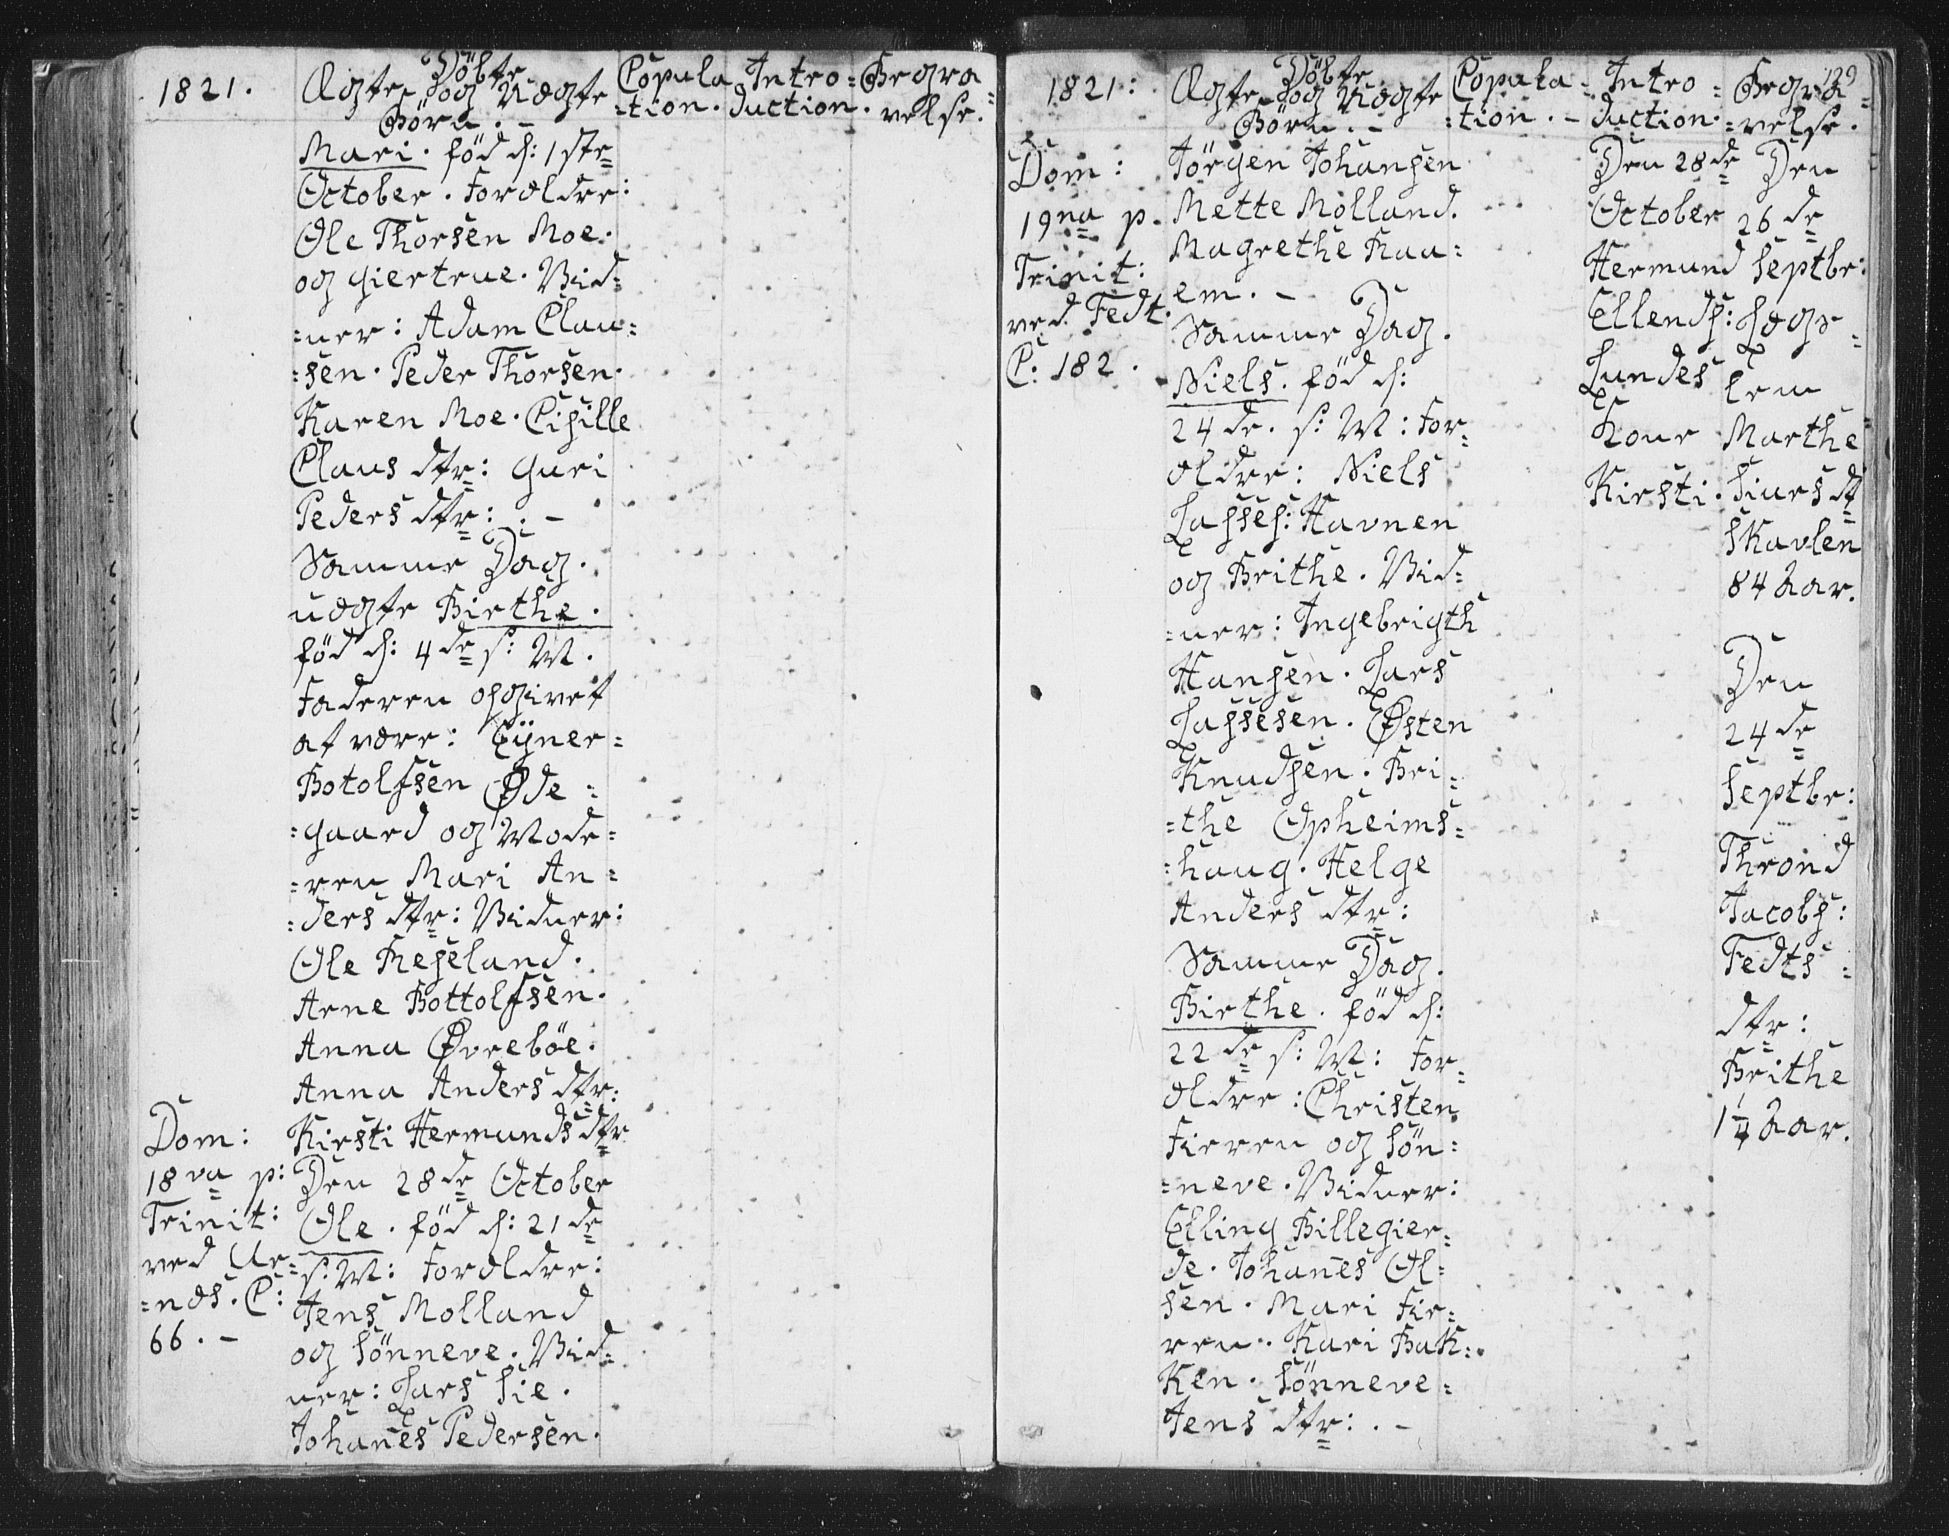 1821.
Døbte
Ægte og Uægte
Börn. -
Copula
-tion.
Intro=
duction.
Begra=
velse.
Mari. föd d: 1ste
October. Forældre:
Ole Thorsen Moe.
og Giertrue. Vid=
=ner: Adam Clau=
=sen. Peder Thorsen.
Karen Moe. Cisille
Claus dtr: Guri
Peders dtr: . -
Samme Dag.
uægte Birthe.
föd d: 4de s: M.
Faderen opgivet
at være: Eÿner=
Botolfsen Øde=
=gaard og Mode=
=ren Mari An=
=ders dtr: Vidner:
Ole Refseland.
Arne Bottolfsen.
Anna Øvrebøe.
Anna Anders dtr:
Kirsti Hermunds dtr
Dom:
18va p:
Trinit:
ved Ur=
=næs. C:
66. -
Den 28de October
Ole. föd d: 21de
s: M: Forældre:
Jens Molland
og Sönneve. Vid=
ner: Lars Lie.
Johanes Pedersen.
129
1821:
Döbte
Ægte og Uægte
Börn. -
Copula-
=tion. -
Intro=
duction.
Begra=
=velse.
Dom:
19na p.
Trinit:
ved Fedt.
C: 182.
Jörgen Johansen
Mette Molland.
Magrethe Raa=
em. -
Samme Dag.
Niels. föd d:
24de. s: M: For=
ældre: Niels
Lasses: Havnen
og Brithe. Vid=
=ner: Ingebrigth
Hansen. Lars
Lassesen. Østen
Knudsen. Bri=
=the Opheims=
=haug. Helge
Anders dtr:
Samme Dag.
Birthe. föd d:
22de s: M: For=
ældre: Christen
Fieren og Sön=
=neve. Vidner:
Elling Billegier=
de. Johanes Ol=
sen. Mari Fie=
ren. Kari Bak=
ken. Sönneve=
Jens dtr: . -
Den 28de
October
Hermund
Ellends:
Lundes
Kone
Kirsti.
Den
26de
Septbr:
Lægs=
lem
Marthe
Siursdt
Skavlen
84 Aar.
Den
24de
Septbr:
Thrond
Jacobs:
Fedts=
dtr:
Brithe
1¼ Aar.